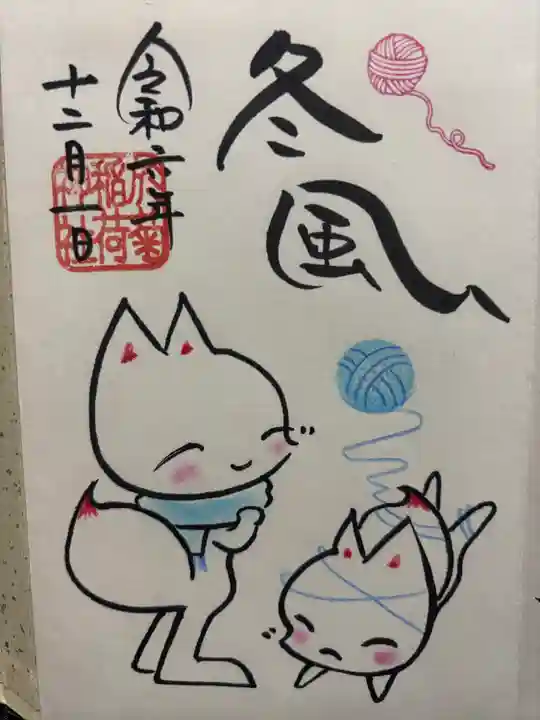 冬風
令和六年
十二月一日
稲荷
神社